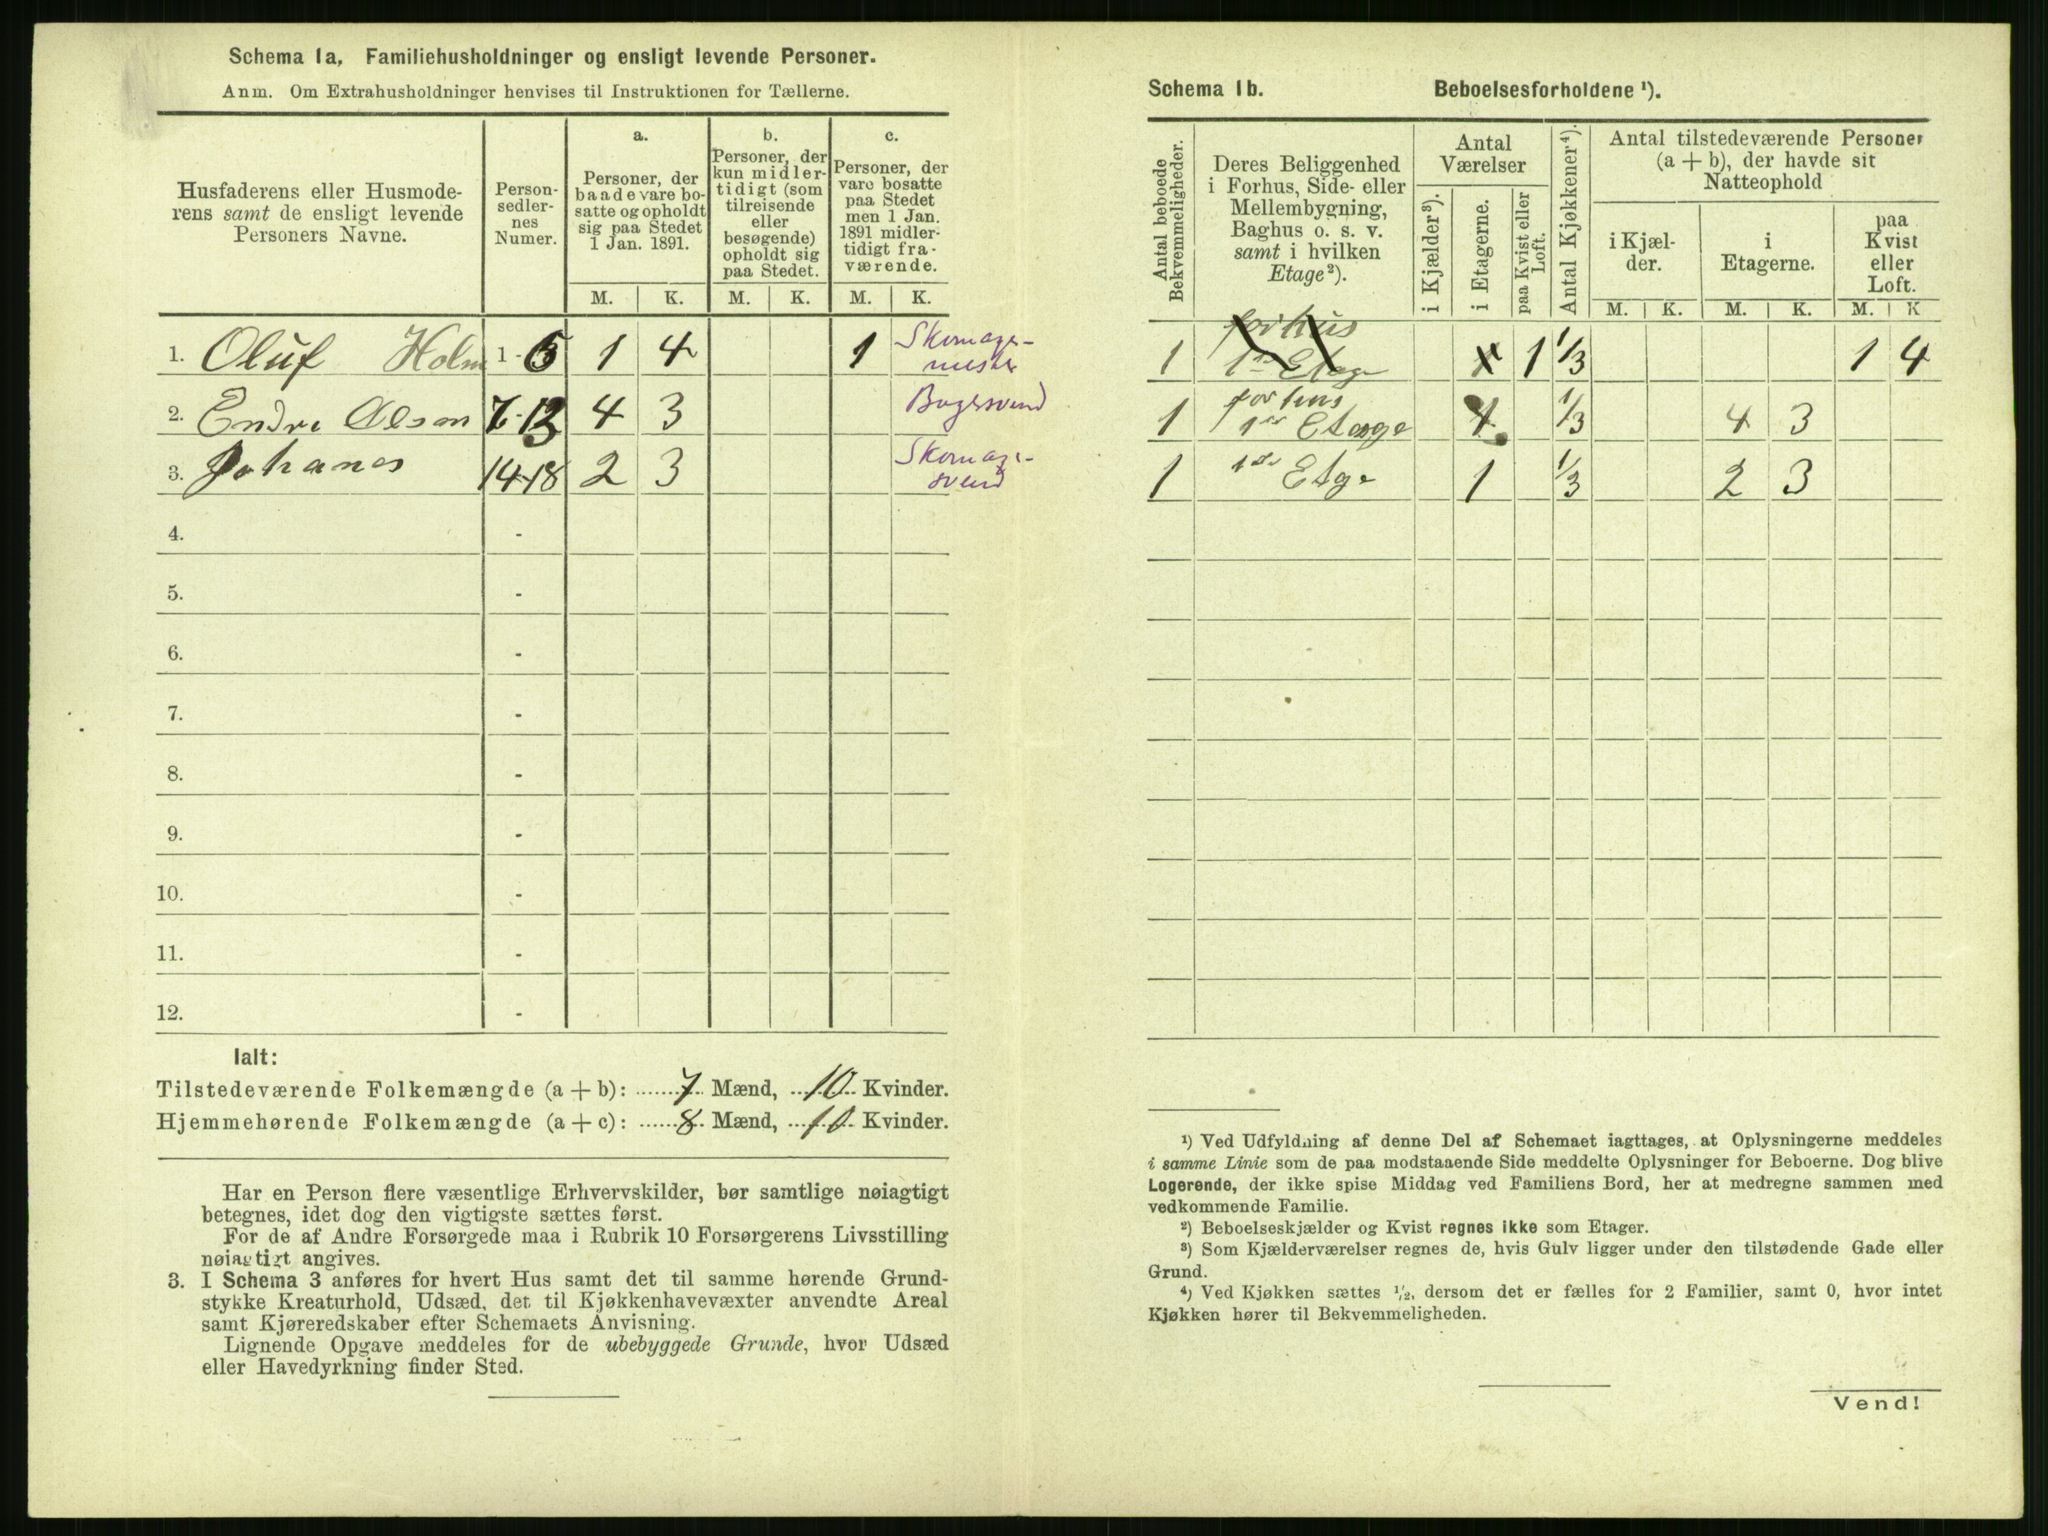 Schema 1a, Familiehusholdninger og ensligt levende Personer.
Anm. Om Extrahusholdninger henvises til Instruktionen for Tællerne.
Husfaderens eller Husmode-
rens samt de ensligt levende
Personers Navne.
Person-
sedler-
nes
Numer.
a.
Personer, der
baade vare bo-
satte og opholdt
sig paa Stedet
1 Jan. 1891.
b.
Personer, der
kun midler-
tidigt (som
tilreisende
eller
besøgende)
opholdt sig
paa Stedet.
c.
Personer, der
vare bosatte
paa Stedet
men 1 Jan.
1891 midler-
tidigt fra-
værende.
M. K. M. K. M. K.
1. Oluf Holm 1 - 5 1 4 1 Skomager-
mester
2. Endre Olsen 7-13 4 3 Bagersvend
3. Johanes 14-18 2 3 Skomager-
svend
4. -
5. -
6. -
7. -
8. -
9. -
10. -
11. -
12. -
Ialt:
Tilstedeværende Folkemængde (a + b): 7 Mænd, 10 Kvinder.
Hjemmehørende Folkemængde (a + c): 8 Mænd, 10 Kvinder.
Har en Person flere væsentlige Erhvervskilder, bør samtlige nøiagtigt
betegnes, idet dog den vigtigste sættes først.
For de af Andre Forsørgede maa i Rubrik 10 Forsørgerens Livsstilling
nøiagtigt angives.
3. I Schema 3 anføres for hvert Hus samt det til samme hørende Grund-
stykke Kreaturhold, Udsæd, det til Kjøkkenhavevæxter anvendte Areal
samt Kjøreredskaber efter Schemaets Anvisning.
Lignende Opgave meddeles for de ubebyggede Grunde, hvor Udsæd
eller Havedyrkning finder Sted.
Schema 1b. Beboelsesforholdene ¹).
Antal beboede
Bekvemmeligheder.
Deres Beliggenhed
i Forhus, Side- eller
Mellembygning,
Baghus o. s. v.
samt i hvilken
Etage²).
Antal
Værelser
i Kjælder³).
i Etagerne.
paa Kvist eller
Loft.
Antal Kjøkkener⁴).
Antal tilstedeværende Personer
(a + b), der havde sit
Natteophold
i Kjæl-
der.
i
Etagerne.
paa
Kvist
eller
Loft.
M. K. M. K. M. K
forhus
1 1ste Etage x 1 1/3 1 4
forhus
1 1ste Etage 1/3 4 3
1 1ste Etge 1 1/3 2 3
¹) Ved Udfyldning af denne Del af Schemaet iagttages, at Oplysningerne meddeles
i samme Linie som de paa modstaaende Side meddelte Oplysninger for Beboerne. Dog blive
Logerende, der ikke spise Middag ved Familiens Bord, her at medregne sammen med
vedkommende Familie.
²) Beboelseskjælder og Kvist regnes ikke som Etager.
³) Som Kjælderværelser regnes de, hvis Gulv ligger under den tilstødende Gade eller
Grund.
⁴) Ved Kjøkken sættes 1/2, dersom det er fælles for 2 Familier, samt 0, hvor intet
Kjøkken hører til Bekvemmeligheden.
Vend!